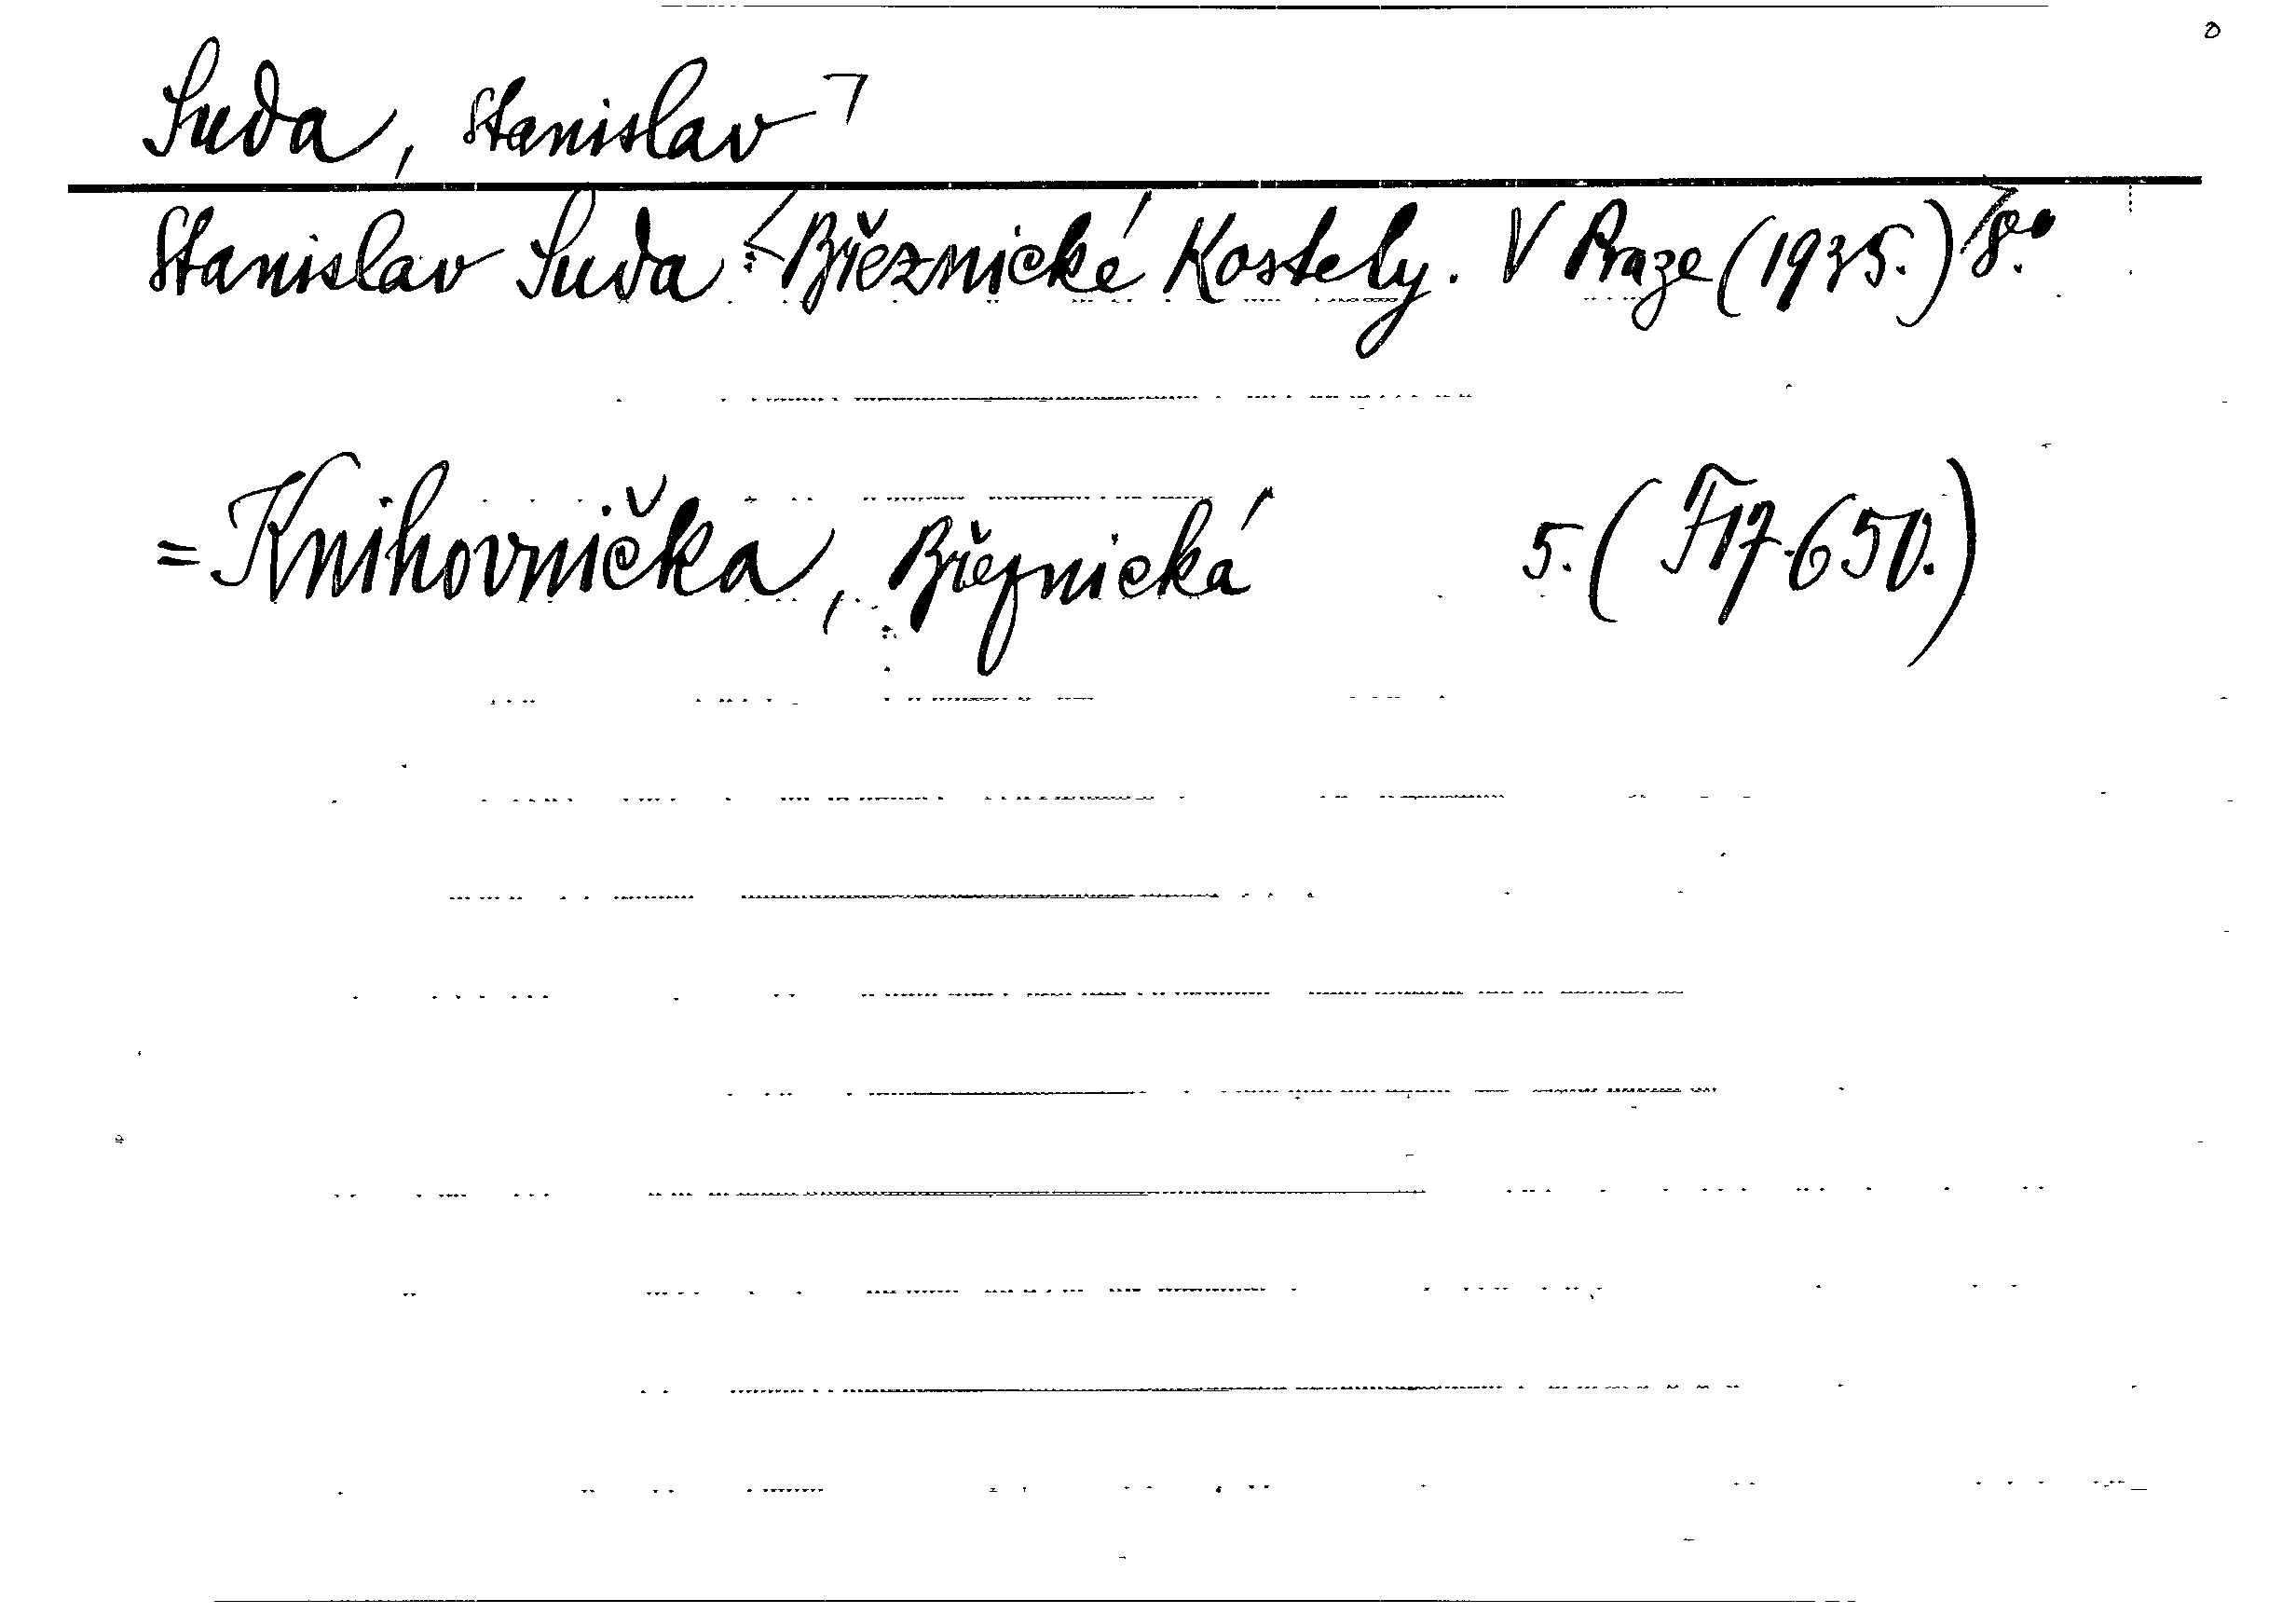 Suda, Stanislav
Stanislav Suda: Březnické Kostely. V Praze (1935.) 8.°
= Knihovnička, Březnická 5. (F 17.650.)